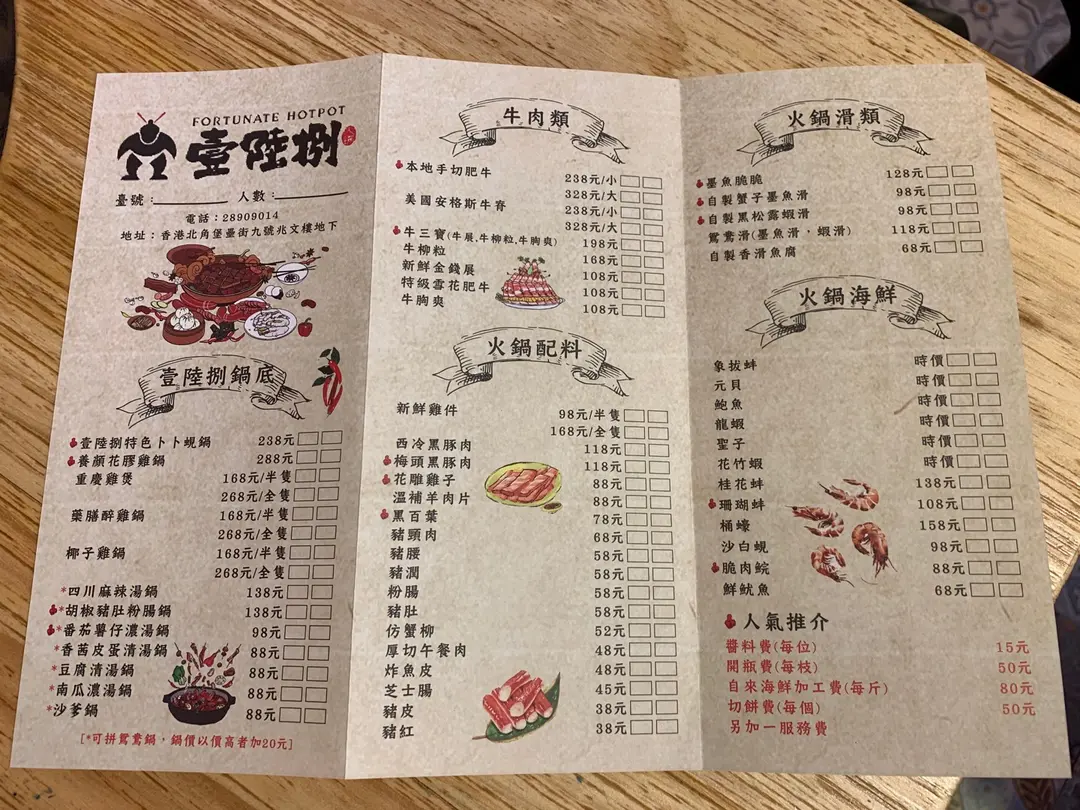 FORTUNATE HOTPOT
壹陸捌
臺號： 人數：
電話：28909014
地址：香港北角堡壘街九號兆文樓地下
壹陸捌鍋底
壹陸捌特色卜卜蜆鍋 238元
養顏花膠雞鍋 288元
重慶雞煲 168元/半隻
268元/全隻
藥膳醉雞鍋 168元/半隻
268元/全隻
椰子雞鍋 168元/半隻
268元/全隻
*四川麻辣湯鍋 138元
*胡椒豬肚粉腸鍋 138元
*番茄薯仔濃湯鍋 98元
*香茜皮蛋清湯鍋 88元
*豆腐清湯鍋 88元
*南瓜濃湯鍋 88元
*沙爹鍋 88元
[*可拼鴛鴦鍋，鍋價以價高者加20元]
牛肉類
本地手切肥牛 238元/小
328元/大
美國安格斯牛脊 238元/小
328元/大
牛三寶(牛展,牛柳粒,牛胸爽) 198元
牛柳粒 168元
新鮮金錢展 108元
特級雪花肥牛 108元
牛胸爽 108元
火鍋配料
新鮮雞件 98元/半隻
168元/全隻
西冷黑豚肉 118元
梅頭黑豚肉 118元
花雕雞子 88元
溫補羊肉片 88元
黑百葉 78元
豬頸肉 68元
豬腰 58元
豬潤 58元
粉腸 58元
豬肚 58元
仿蟹柳 52元
厚切午餐肉 48元
炸魚皮 48元
芝士腸 45元
豬皮 38元
豬紅 38元
火鍋滑類
墨魚脆脆 128元
自製蟹子墨魚滑 98元
自製黑松露蝦滑 98元
鴛鴦滑(墨魚滑，蝦滑) 118元
自製香滑魚腐 68元
火鍋海鮮
象拔蚌 時價
元貝 時價
鮑魚 時價
龍蝦 時價
聖子 時價
花竹蝦 時價
桂花蚌 138元
珊瑚蚌 108元
桶蠔 158元
沙白蜆 98元
脆肉鯇 88元
鮮魷魚 68元
人氣推介
醬料費(每位) 15元
開瓶費(每枝) 50元
自來海鮮加工費(每斤) 80元
切餅費(每個) 50元
另加一服務費